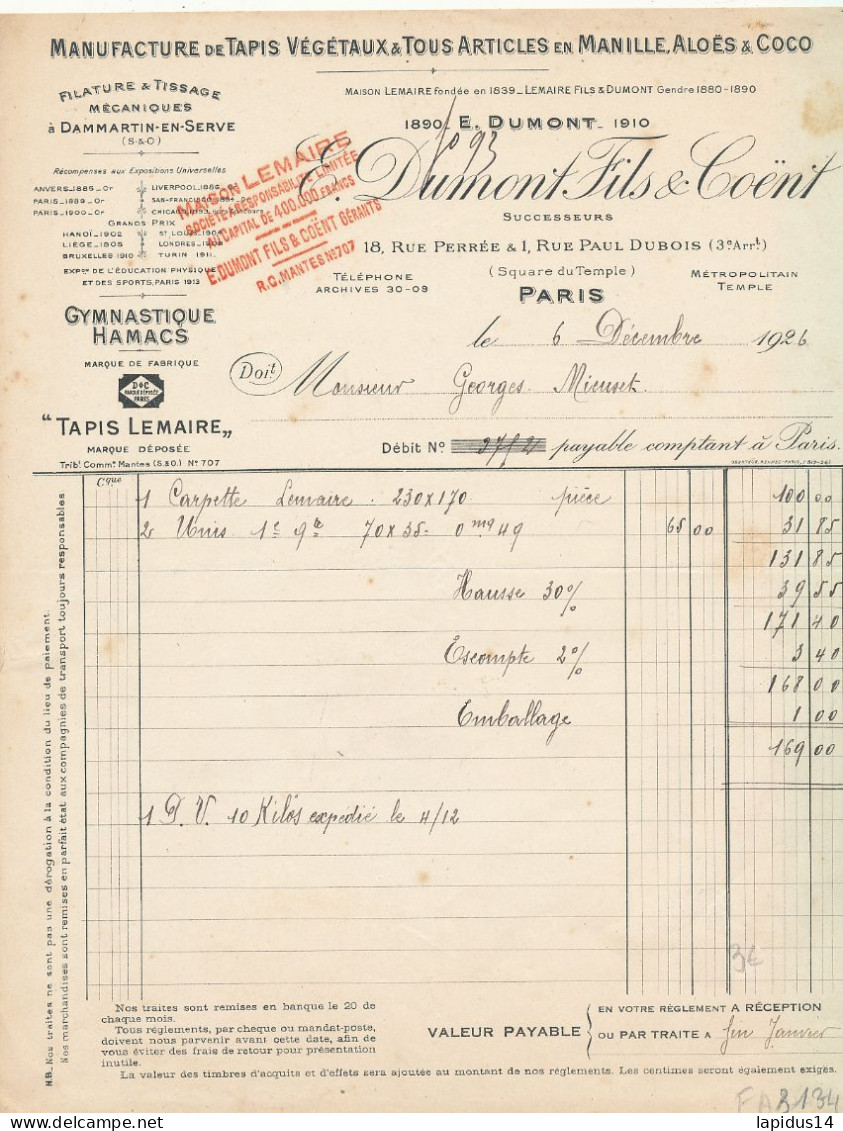 MANUFACTURE DE TAPIS VÉGÉTAUX & TOUS ARTICLES EN MANILLE, ALOËS & COCO
FILATURE & TISSAGE
MÉCANIQUES
à DAMMARTIN-EN-SERVE
(S&O)
MAISON LEMAIRE fondée en 1839_LEMAIRE FILS & DUMONT Gendre 1880-1890
1890_E. DUMONT_1910
E. Dumont Fils & Coënt
SUCCESSEURS
18, RUE PERRÉE & 1, RUE PAUL DUBOIS (3e Arrt)
(Square du Temple)
TÉLÉPHONE
ARCHIVES 30-09
MÉTROPOLITAIN
TEMPLE
PARIS
MAISON LEMAIRE
SOCIÉTÉ A RESPONSABILITÉ LIMITÉE
AU CAPITAL DE 400.000 FRANCS
E. DUMONT FILS & COËNT GÉRANTS
R.C. MANTES No 707
Récompenses aux Expositions Universelles
ANVERS_1885_Or
PARIS_1889_Or
PARIS_1900_Or
LIVERPOOL_1886_Or
GRANDS PRIX
HANOÏ_1902
LIÈGE_1905
BRUXELLES 1910
ST LOUIS_1904
LONDRES_1908
TURIN 1911_
EXPon DE L'ÉDUCATION PHYSIQUE
ET DES SPORTS, PARIS 1913
GYMNASTIQUE
HAMACS
MARQUE DE FABRIQUE
D&C
MARQUE DÉPOSÉE
PARIS
"TAPIS LEMAIRE„
MARQUE DÉPOSÉE
Tribl Comme Mantes (S.&O.) No 707
le 6 Décembre 1926
Doit Monsieur Georges Mieuset
Débit No 3752 payable comptant à Paris.
Cque
1 Carpette Lemaire . 230x170 pièce 100 00
2 Unis 1e qte 70x35 0mq49 65 00 31 85
131 85
Hausse 30% 39 55
171 40
Escompte 2% 3 40
168 00
Emballage 1 00
169 00
1 P. V. 10 Kilós expédié le 4/12
3€
NB_Nos traites ne sont pas une dérogation à la condition du lieu de paiement.
Nos marchandises sont remises en parfait état aux compagnies de transport toujours responsables
Nos traites sont remises en banque le 20 de
chaque mois.
Tous réglements, par cheque ou mandat-poste,
doivent nous parvenir avant cette date, afin de
vous éviter des frais de retour pour présentation
inutile.
VALEUR PAYABLE
EN VOTRE RÉGLEMENT A RÉCEPTION
OU PAR TRAITE A fin Janvier
La valeur des timbres d'acquits et d'effets sera ajoutée au montant de nos réglements. Les centimes seront également exigés.
FA3134
delcampe.net
lapidus14